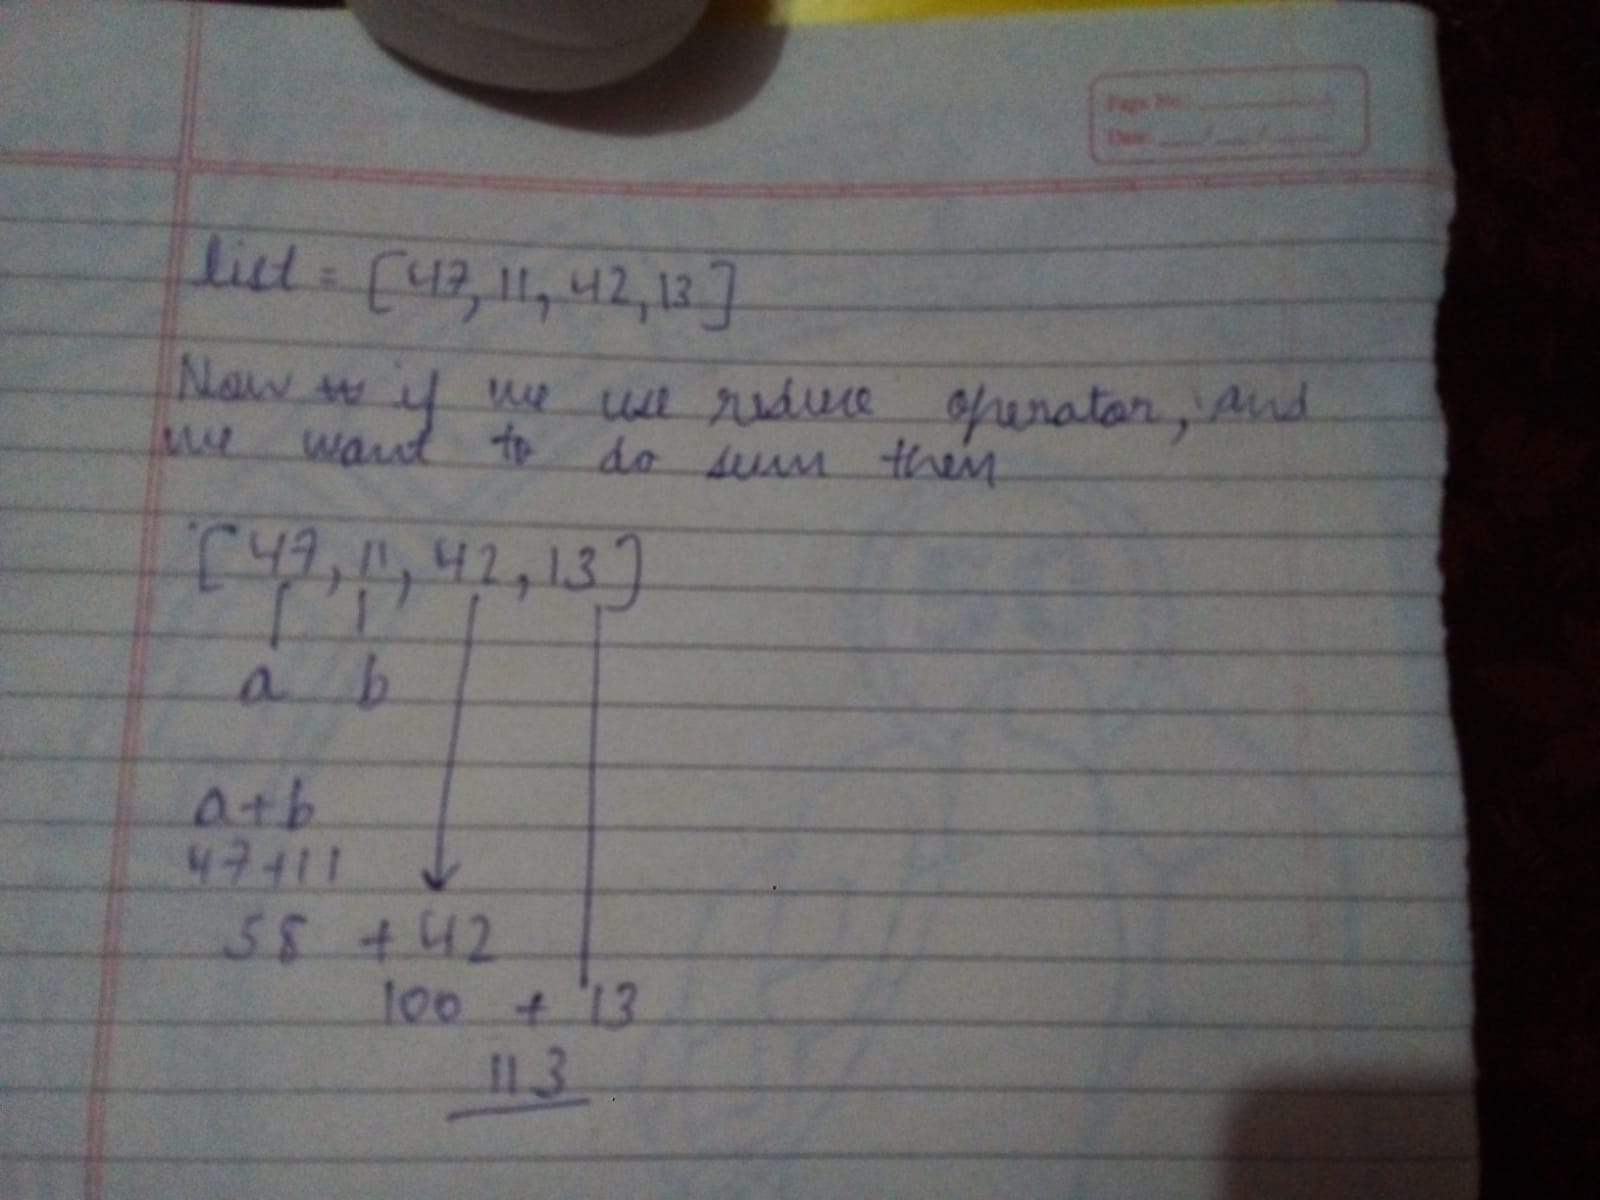 Page No.
Date: / /
list = [47, 11, 42, 13]
Now if we use reduce operator, and
we want to do sum then
[47, 11, 42, 13]
a b
a+b
47+11
58 + 42
100 + 13
113